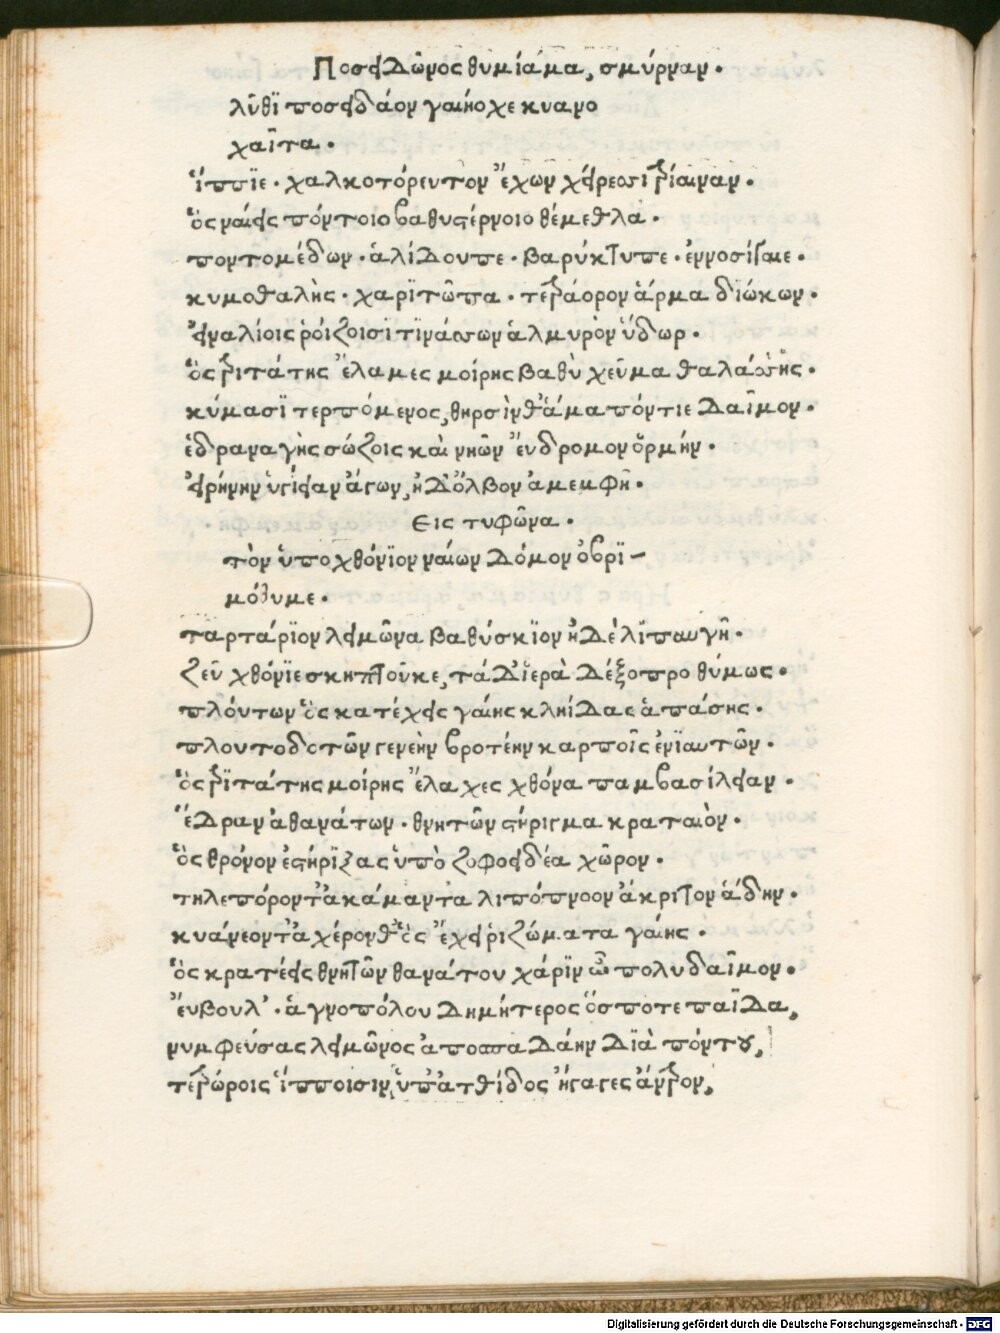 Ποσειδῶνος θυμίαμα, σμύρναν.
λῦθϊ ποσειδάον γαιήοχε κυανο
χαῖτα.
ἵππϊε. χαλκοτόρευτον ἔχων χείρεσσι τρίαιναν.
ὃς ναίεις πόντοιο βαθυστέρνοιο θέμεθλα.
ποντομέδων. ἁλίδουπε. βαρύκτυπε. ἐννοσίγαιε.
κυμοθαλὴς. χαρϊτῶπα. τετράορον ἅρμα διώκων.
εἰναλίοις ῥοίζοισϊ τϊνάσσων ἁλμυρὸν ὕδωρ.
ὃς τριτάτης ἔλαμες μοίρης βαθὺ χεῦμα θαλάσσης.
κύμασϊ τερπόμενος, θηρσὶν θ' ἅμα πόντιε δαῖμον.
ἕδρανα γῆς σώζοις καὶ νηῶν ἔνδρομον ὁρμήν.
εἰρήνην ὑγίειαν ἄγων, ἠδ' ὄλβον ἀμεμφῆ.
Εις τυφῶνα.
τὸν ὑποχθόνϊον ναίων δόμον ὀβρϊ-
μόθυμε.
ταρτάρϊον λειμῶνα βαθύσκϊον ἠδὲ λϊπαυγῆ.
ζεῦ χθόνϊε σκηπτοῦκε, τάδ' ἱερὰ δέξο προθύμως.
πλούτων ὃς κατέχεις γαίης κληίδας ἁπάσης.
πλουτοδοτῶν γενεὴν βροτέην καρποῖς ἐνϊαυτῶν.
ὃς τρϊτάτης μοίρης ἔλαχες χθόνα παμβασίλειαν.
ἕδραν ἀθανάτων. θνητῶν στήριγμα κραταιὸν.
ὃς θρόνον ἐστήριξας ὑπὸ ζοφοειδέα χῶρον.
τηλεπόρον τ' ἀκάμαντα λιπόπνοον ἄκριτον ἅδην.
κυάνεον τ' ἀχέρονθ' ὃς ἔχει ῥιζώματα γαίης.
ὃς κρατέεις θνητῶν θανάτου χάρϊν ὦ πολυδαῖμον.
ἔυβουλ'. ἁγνοπόλου δημήτερος ὅς ποτε παῖδα,
νυμφεύσας λειμῶνος ἀποσπαδάην δϊὰ πόντου,
τετρώροις ἵπποισιν, ὑπ' ἀτθίδος ἤγαγες ἄντρον,
Digitalisierung gefördert durch die Deutsche Forschungsgemeinschaft - DFG